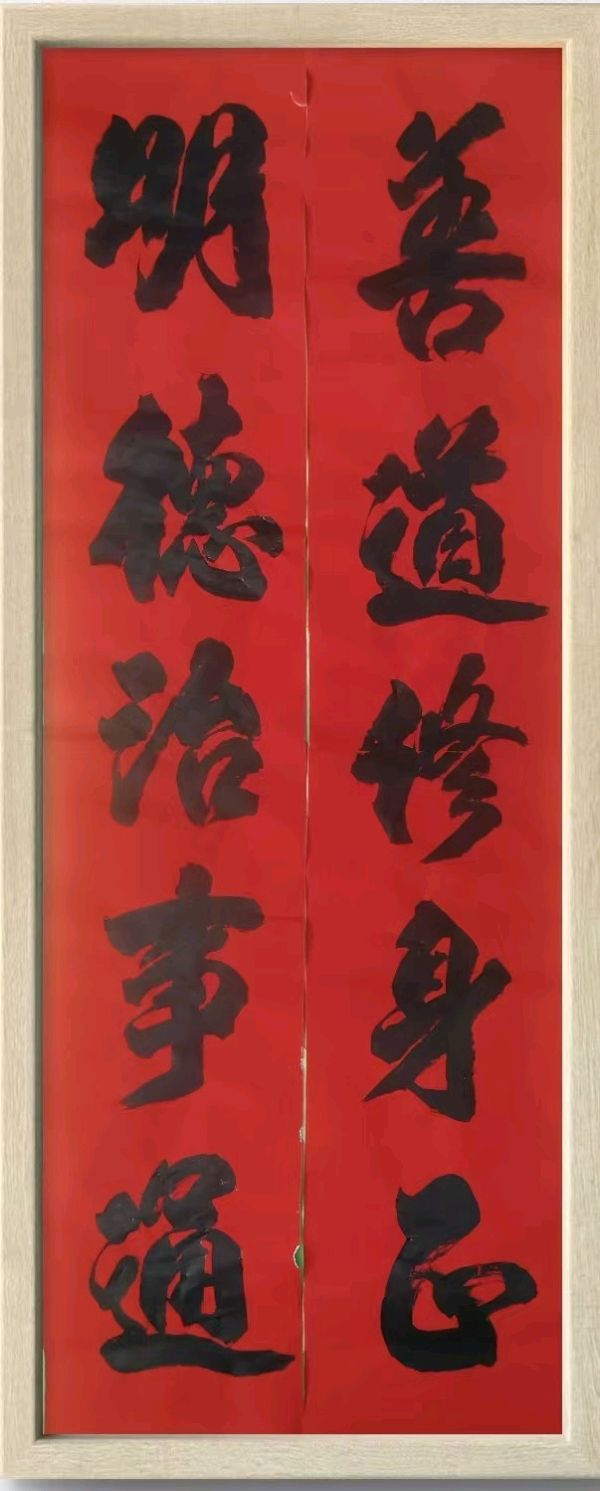 善道修身正
明德治事通